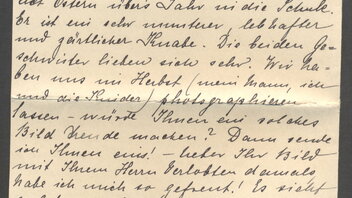 Ostern übers Jahr in die Schule.
Er ist ein sehr munterer lebhafter
und zärtlicher Knabe. Die beiden Ge-
schwister lieben sich sehr. Wir ha-
ben uns im Herbst (mein Mann, ich
und die Kinder) photographieren
lassen – würde Ihnen ein solches
Bild Freude machen? Dann sende
ich Ihnen eins! – Ueber Ihr Bild
mit Ihrem Herrn Verlobten damals
habe ich mich so gefreut! Es sieht